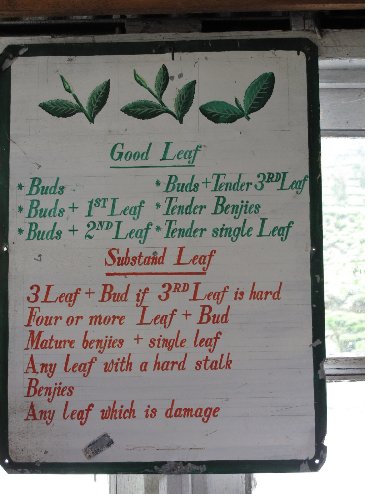 Good Leaf
* Buds * Buds + Tender 3RD Leaf
* Buds + 1ST Leaf * Tender Benjies
* Buds + 2ND Leaf * Tender single Leaf
Substand Leaf
3 Leaf + Bud if 3RD Leaf is hard
Four or more Leaf + Bud
Mature benjies + single leaf
Any leaf with a hard stalk
Benjies
Any leaf which is damage